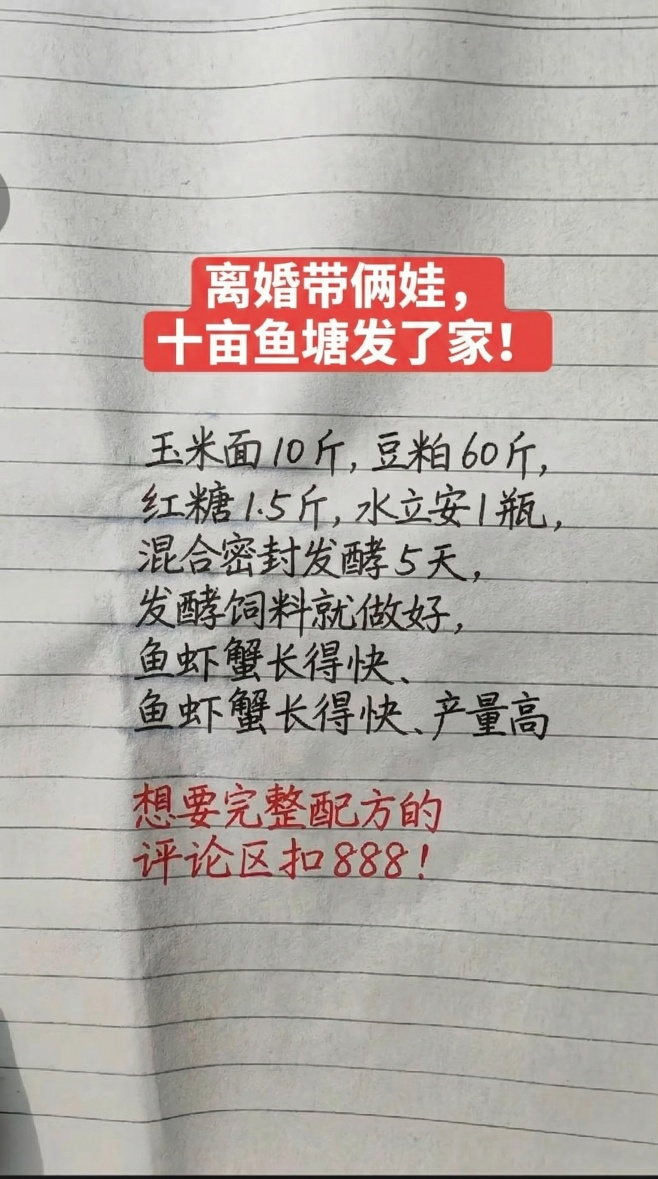 离婚带俩娃，
十亩鱼塘发了家！
玉米面10斤，豆粕60斤，
红糖1.5斤，水立安1瓶，
混合密封发酵5天，
发酵饲料就做好，
鱼虾蟹长得快、
鱼虾蟹长得快、产量高
想要完整配方的
评论区扣888！